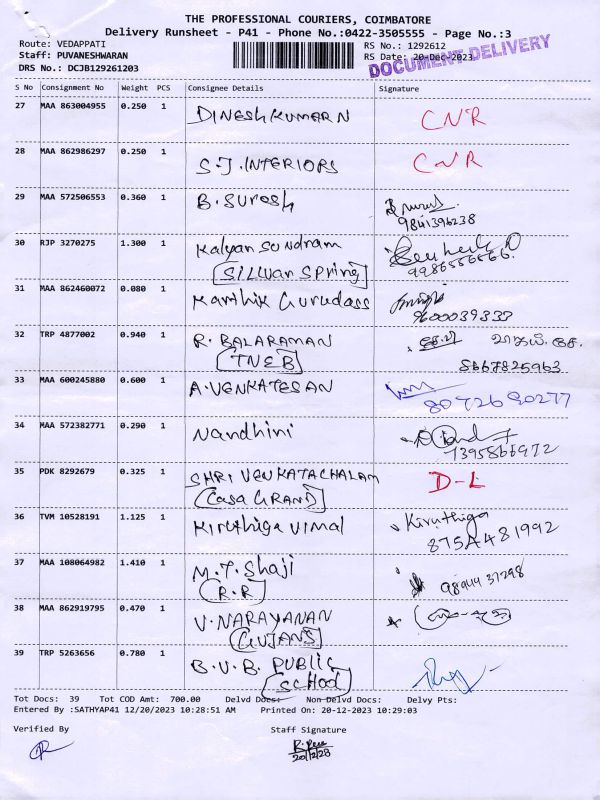 THE PROFESSIONAL COURIERS, COIMBATORE
Delivery Runsheet - P41 - Phone No.:0422-3505555 - Page No.:3
Route: VEDAPPATI
Staff: PUVANESHWARAN
DRS No.: DCJB129261203
RS No.: 1292612
RS Date: 20-Dec-2023
DOCUMENT DELIVERY
S No Consignment No Weight PCS Consignee Details Signature
27 MAA 863004955 0.250 1 DINESHKUMAR N CNR
28 MAA 862986297 0.250 1 S.J. INTERIORS CNR
29 MAA 572506553 0.360 1 B. Suresh
9841396238
30 RJP 3270275 1.300 1 Kalyan Sundram
Silluar Spring
31 MAA 862460072 0.080 1 Karthik Gurudass
9600039333
32 TRP 4877002 0.940 1 R. BALARAMAN
TNEB
33 MAA 600245880 0.600 1 A. VENKATESAN
34 MAA 572382771 0.290 1 Nandhini
7395866972
35 PDK 8292679 0.325 1 SHRI VENKATACHALAM D-L
Casa GRAND
36 TVM 10528191 1.125 1 Kiruthiga Vimal Kiruthiga
8754481992
37 MAA 108064982 1.410 1 M.T. Shaji
R.R
38 MAA 862919795 0.470 1 V. NARAYANAN
GUJANS
39 TRP 5263656 0.780 1 B.V.B. PUBLIC
SCHOOL
Tot Docs: 39 Tot COD Amt: 700.00 Delvd Docs: Non Delvd Docs: Delvy Pts:
Entered By :SATHYAP41 12/20/2023 10:28:51 AM Printed On: 20-12-2023 10:29:03
Verified By Staff Signature